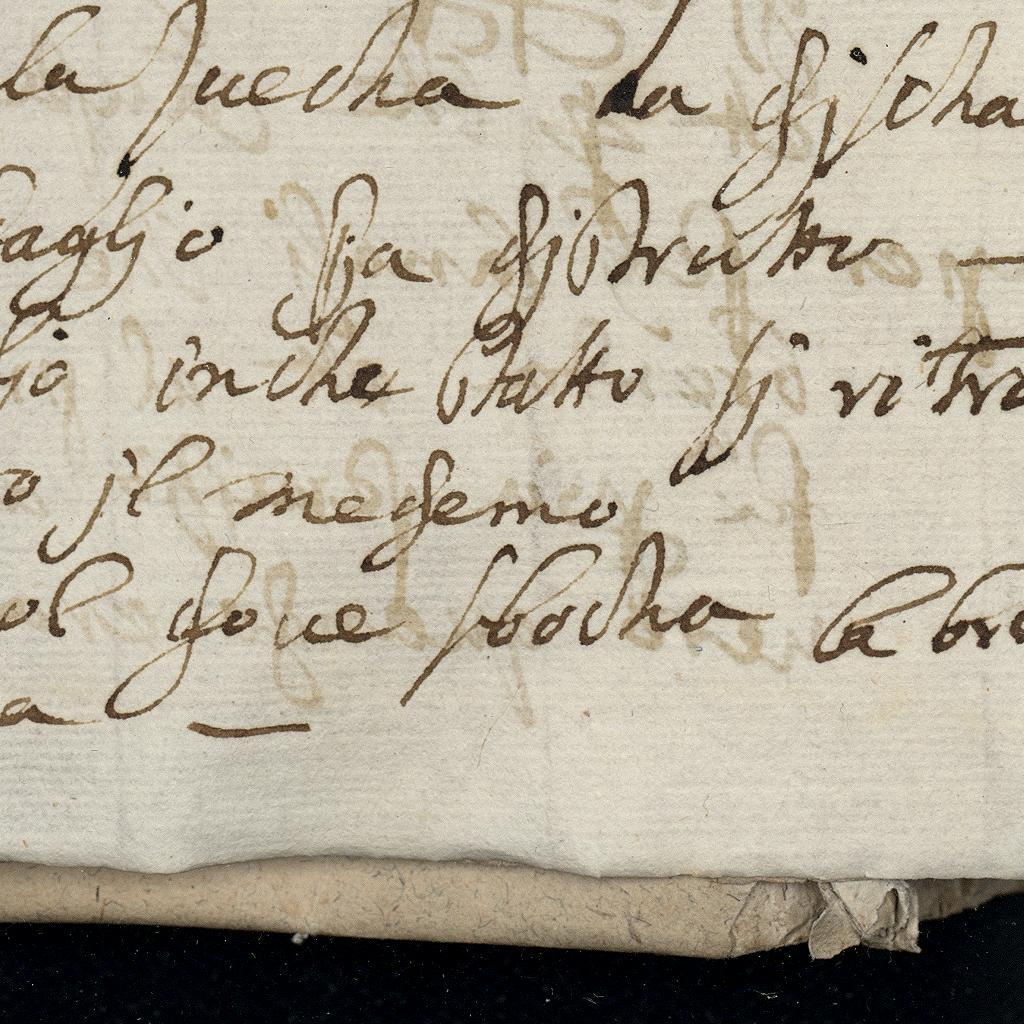 la Juecha La discha
taglio sia distrutto —
lio in che statto si ritro
o il medemo
ol doue sbocha la bre
a —